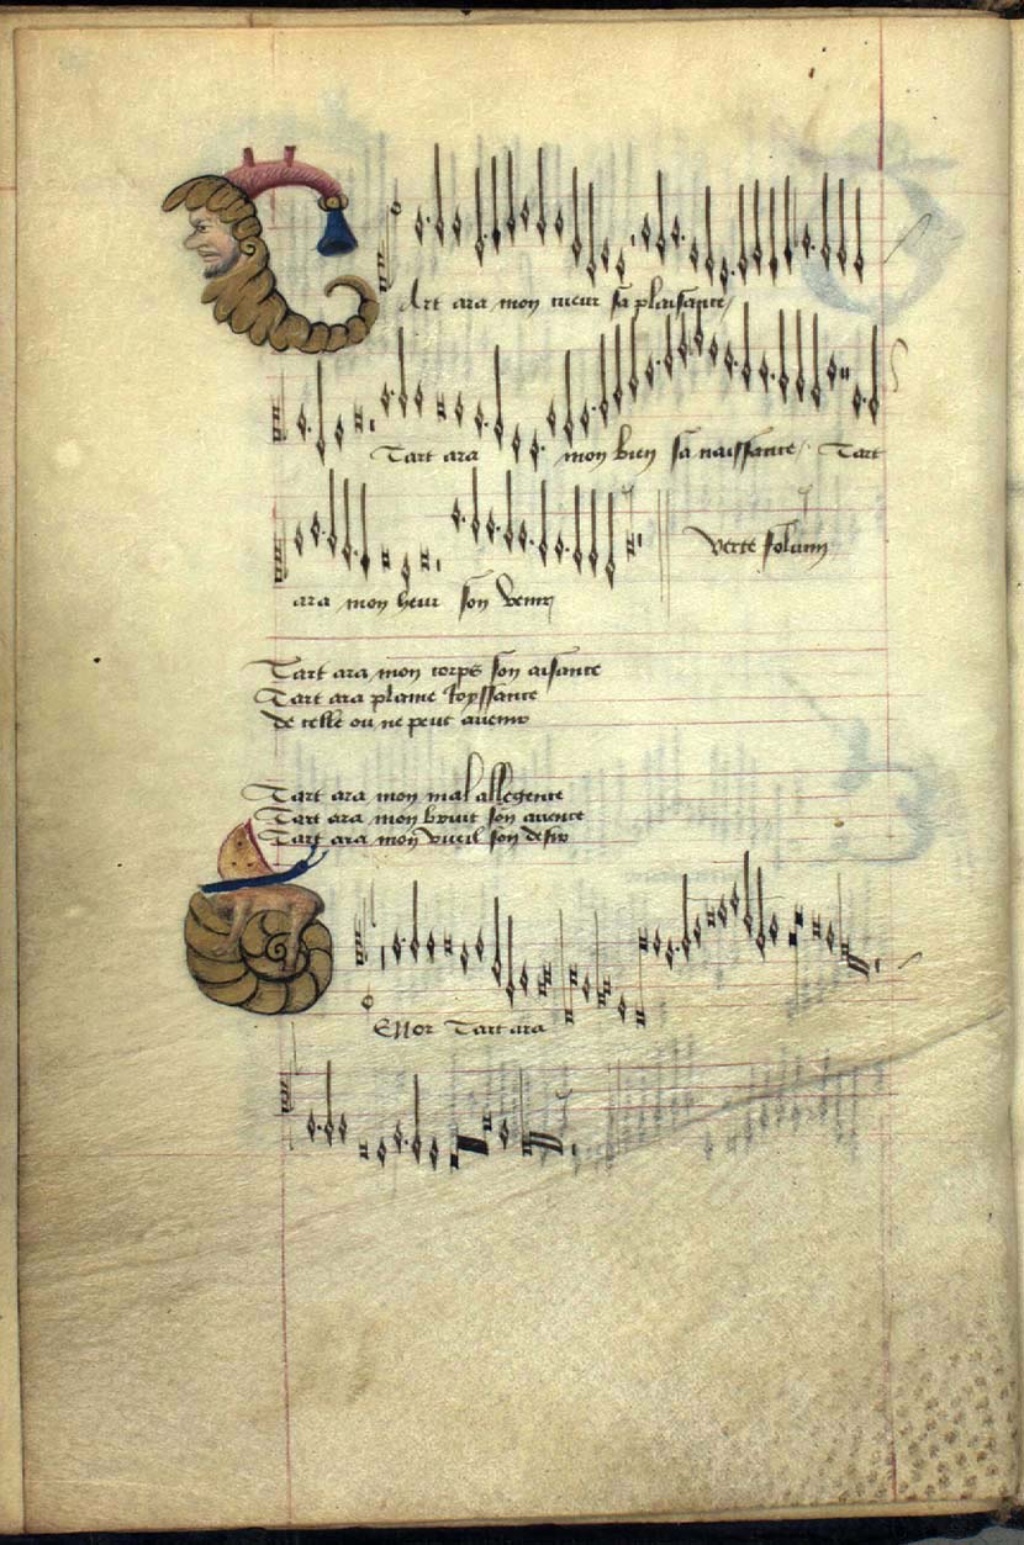 Art ara mon cueur sa plaisance
Tart ara mon bien sa naissance Tart
ara mon heur son venir
verte folium
Tart ara mon corps son aisance
Tart ara plaine Joyssance
de celle ou ne peut avenir
Tart ara mon mal allegence
Tart ara mon bruit son avence
Tart ara mon vueil son desir
Enor Tart ara